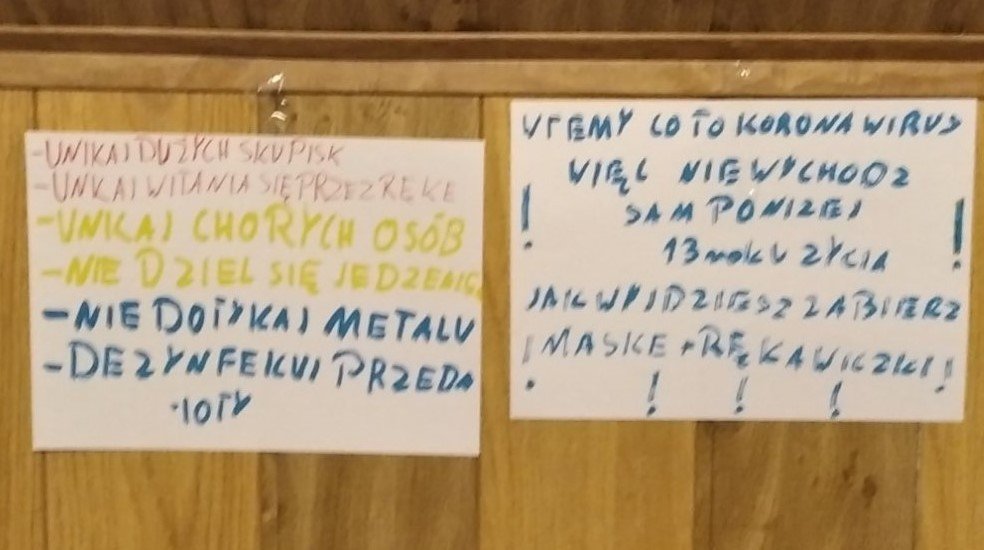 -UNIKAJ DUŻYCH SKUPISK
-UNKAJ WITANIA SIĘ PRZEZ RĘKE
-UNIKAJ CHORYCH OSÓB
-NIE DZIEL SIĘ JEDZENIE
-NIE DOTYKAJ METALU
-DEZYNFEKUJ PRZEDM
IOTY
WIEMY CO TO KORONAWIRUS
WIĘC NIE WYCHODZ
! SAM PONIZEJ !
13 roku ŻYCIA
JAK WYJDZIESZ ZABIERZ
! MASKE + RĘKAWICZKI !
! ! !